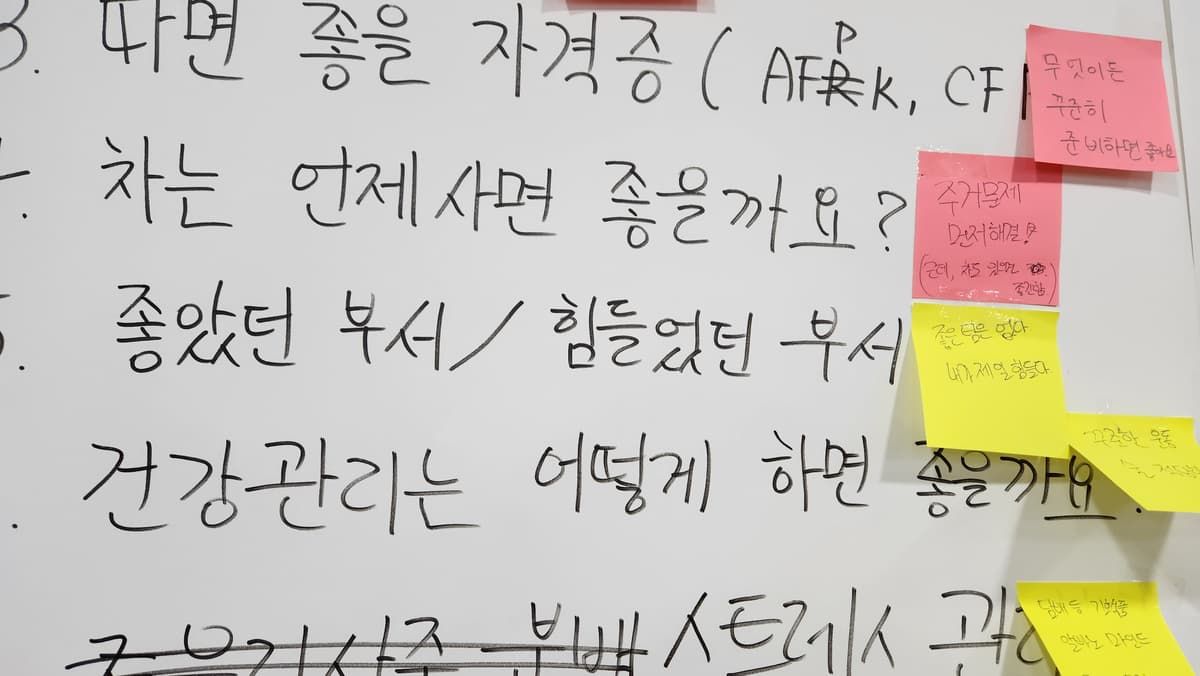 3. 따면 좋을 자격증 ( AFPK, CF
무엇이든
꾸준히
준비하면 좋아요
차는 언제 사면 좋을까요?
주거문제
먼저해결!
(근데, 차도 있으면
좋긴함)
좋았던 부서 / 힘들었던 부서
좋은 팀은 없다
내가 제일 힘들다
건강관리는 어떻게 하면 좋을까요
꾸준한 운동
술
스트레스